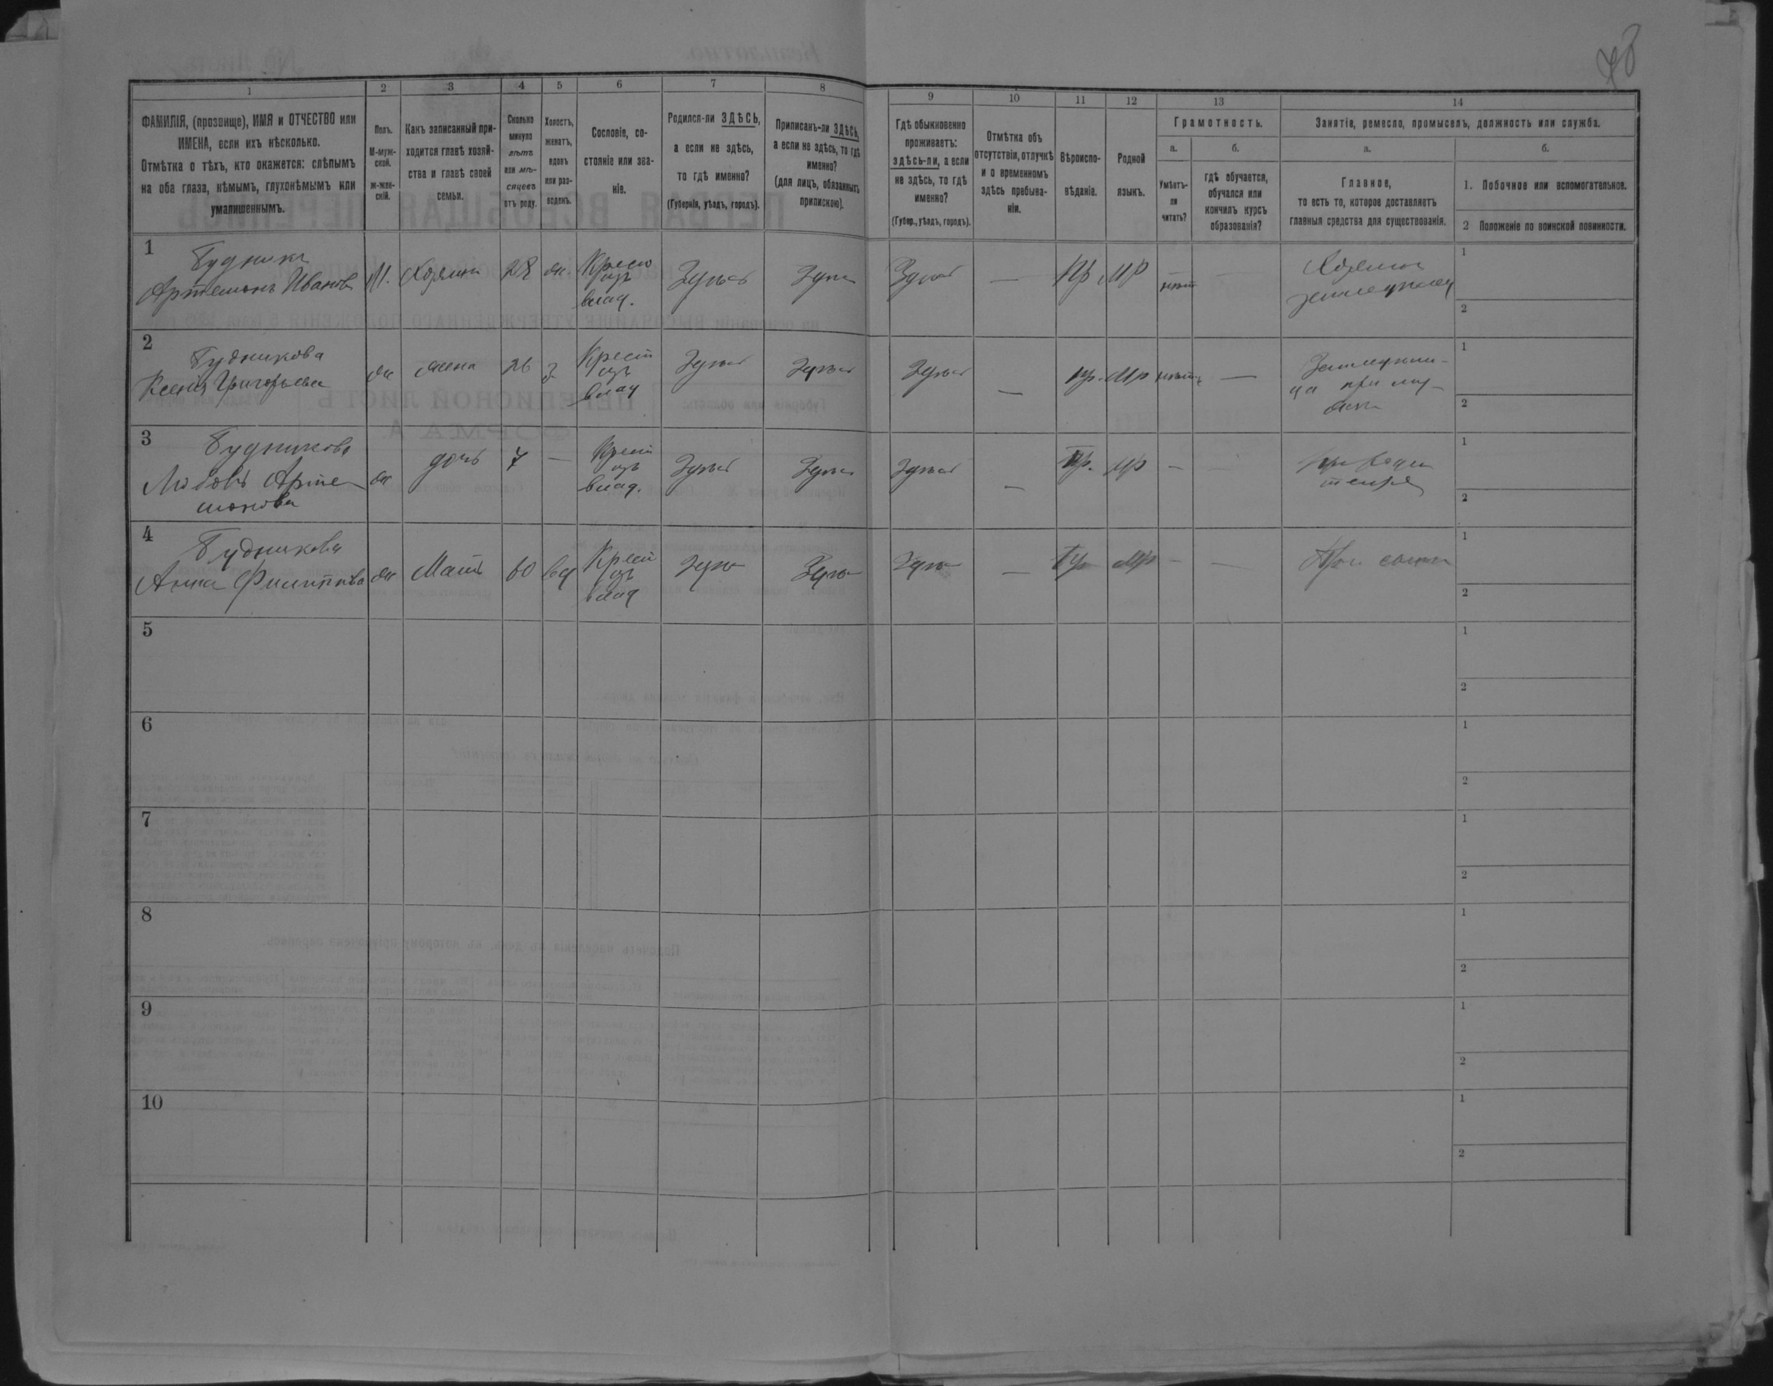 48
1 2 3 4 5 6 7 8 9 10 11 12 13 14
ФАМИЛІЯ, (прозвище), ИМЯ и ОТЧЕСТВО или
ИМЕНА, если ихъ нѣсколько.
Отмѣтка о тѣхъ, кто окажется: слѣпымъ
на оба глаза, нѣмымъ, глухонѣмымъ или
умалишеннымъ.
Полъ.
М-муж-
ской.
ж-жен-
скій.
Какъ записанный при-
ходится главѣ хозяй-
ства и главѣ своей
семьи.
Сколько
минуло
лѣтъ
или мѣ-
сяцевъ
отъ роду.
Холостъ,
женатъ,
вдовъ
или раз-
веденъ.
Сословіе, со-
стояніе или зва-
ніе.
Родился-ли ЗДѢСЬ,
а если не здѣсь,
то гдѣ именно?
(Губернія, уѣздъ, городъ).
Приписанъ-ли ЗДѢСЬ,
а если не здѣсь, то гдѣ
именно?
(для лицъ, обязанныхъ
припискою).
Гдѣ обыкновенно
проживаетъ:
здѣсь-ли, а если
не здѣсь, то гдѣ
именно?
(Губер., уѣздъ, городъ).
Отмѣтка объ
отсутствіи, отлучкѣ
и о временномъ
здѣсь пребыва-
ніи.
Вѣроиспо-
вѣданіе.
Родной
языкъ.
Грамотность.
а.
Умѣетъ-
ли
читать?
б.
гдѣ обучается,
обучался или
кончилъ курсъ
образованія?
Занятіе, ремесло, промыселъ, должность или служба.
а.
Главное,
то есть то, которое доставляетъ
главныя средства для существованія.
б.
1. Побочное или вспомогательное.
2 Положеніе по воинской повинности.
1
Будникъ
Артемонъ Иванов
М. Хозяинъ 28 ж.
Крест
изъ
влад.
Здѣсь Здѣсь Здѣсь — Пр МР нѣтъ —
Хозяинъ
земледѣлец
1
2
2
Будникова
Ксенія Григорьева
ж жена 26 з
Крест
изъ
влад
Здѣсь Здѣсь Здѣсь — пр. МР нѣтъ —
1
2
3
Будникова
Любовь Арте
монова
ж дочь 7 —
Крест
изъ
влад.
Здѣсь Здѣсь Здѣсь — Пр. МР — —
1
2
4
Будникова
Анна Филиппова
ж Мать 60 вд
Крест
изъ
влад
Здѣсь Здѣсь Здѣсь — Пр МР — —
При сынѣ
1
2
5
1
2
6
1
2
7
1
2
8
1
2
9
1
2
10
1
2